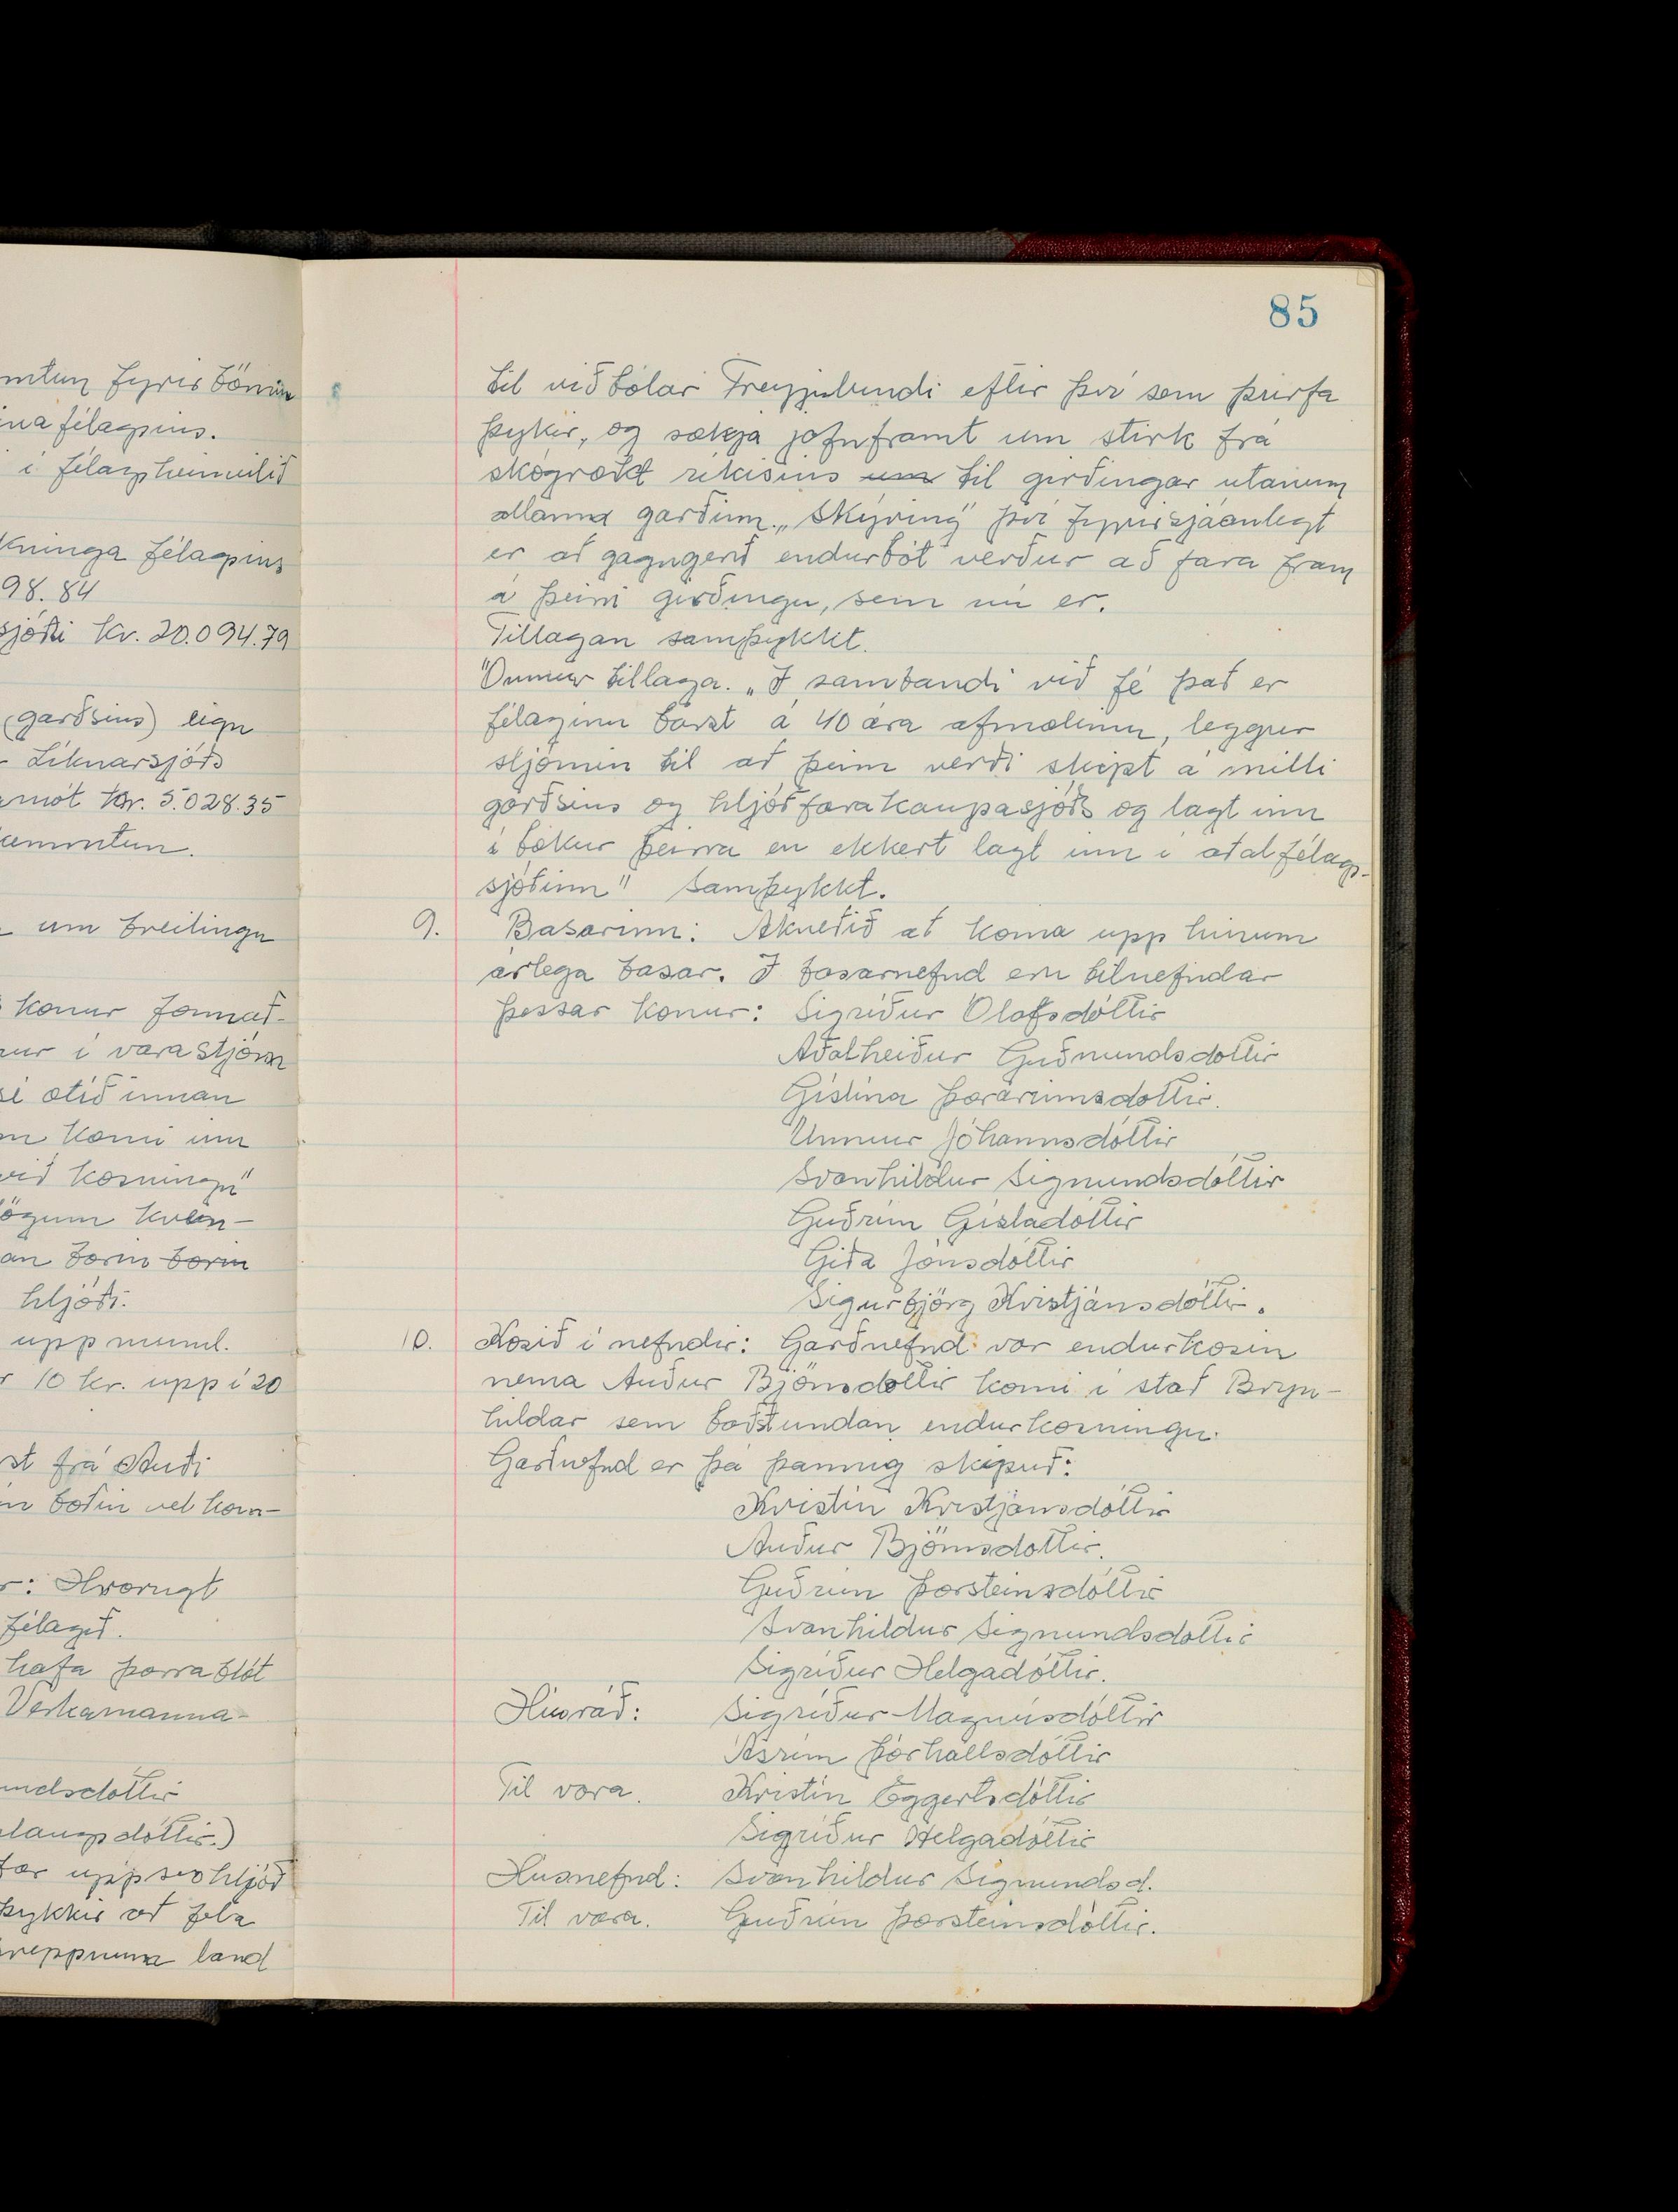 mtun fyrir börnin
ina félagsins.
í félagsheimilið
kninga félagsins
98.84
sjóði kr. 20.094.79
(garðsins) eign
- Líknarsjóðs
amót kr. 5.028.35
kemmtun.
um breitingu
konur formað-
nur í vara stjórn
sé ætíð innan
n komi inn
við kosningu"
ögum kven-
an borin borin
hljóði.
upp mund.
r 10 kr. upp í 20
st frá Auði
n boðin vel kom-
r: Hvorugt
félagið.
hafa þorrablót
Verkamanna-
undsdóttir
laugsdóttir.)
far upp svohljóð
þykkir að fela
hreppnum land
85
til viðbótar Freyjulundi eftir því sem þurfa
þykir, og sækja jafnframt um stirk frá
skógrækt ríkisins um til girðingar utanum
allann garðinn. „Skýring" því fyrirsjáanlegt
er að gagngerð endurbót verður að fara fram
á þeirri girðingu, sem nú er.
Tillagan samþykkt.
Önnur tillaga. „Í sambandi við fé það er
félaginu barst á 40 ára afmælinu, leggur
stjórnin til að þeim verði skipt á milli
garðsins og hljóðfærakaupasjóðs og lagt inn
í bækur þeirra en ekkert lagt inn í aðalfélags-
sjóðinn" Samþykkt.
9. Basarinn: Akveðið að koma upp hinum
árlega basar. Í basarnefnd eru tilnefndar
þessar konur: Sigríður Olafsdóttir
Aðalheiður Guðmundsdottir
Gíslína Þorarinnsdottir.
Unnur Jóhannsdóttir
Svanhildur Sigmundsdóttir
Guðrún Gísladóttir
Gíða Jónsdóttir
Sigurbjörg Kristjánsdóttir.
10. Kosið í nefndir: Garðnefnd var endurkosin
nema Auður Björnsdottir komi í stað Bryn-
hildar sem baðst undan endurkosningu.
Garðnefnd er þá þannig skipuð:
Kristín Kristjánsdóttir
Auður Björnsdottir.
Guðrún Þorsteinsdóttir
Svanhildur Sigmundsdottir
Sigríður Helgadóttir.
Húsráð: Sigríður Magnúsdóttir
Ásrún Þórhallsdóttir
Til vara. Kristín Eggertsdóttir
Sigríður Helgadóttir
Husnefnd: Svanhildur Sigmundsd.
Til vara. Guðrún Þorsteinsdóttir.